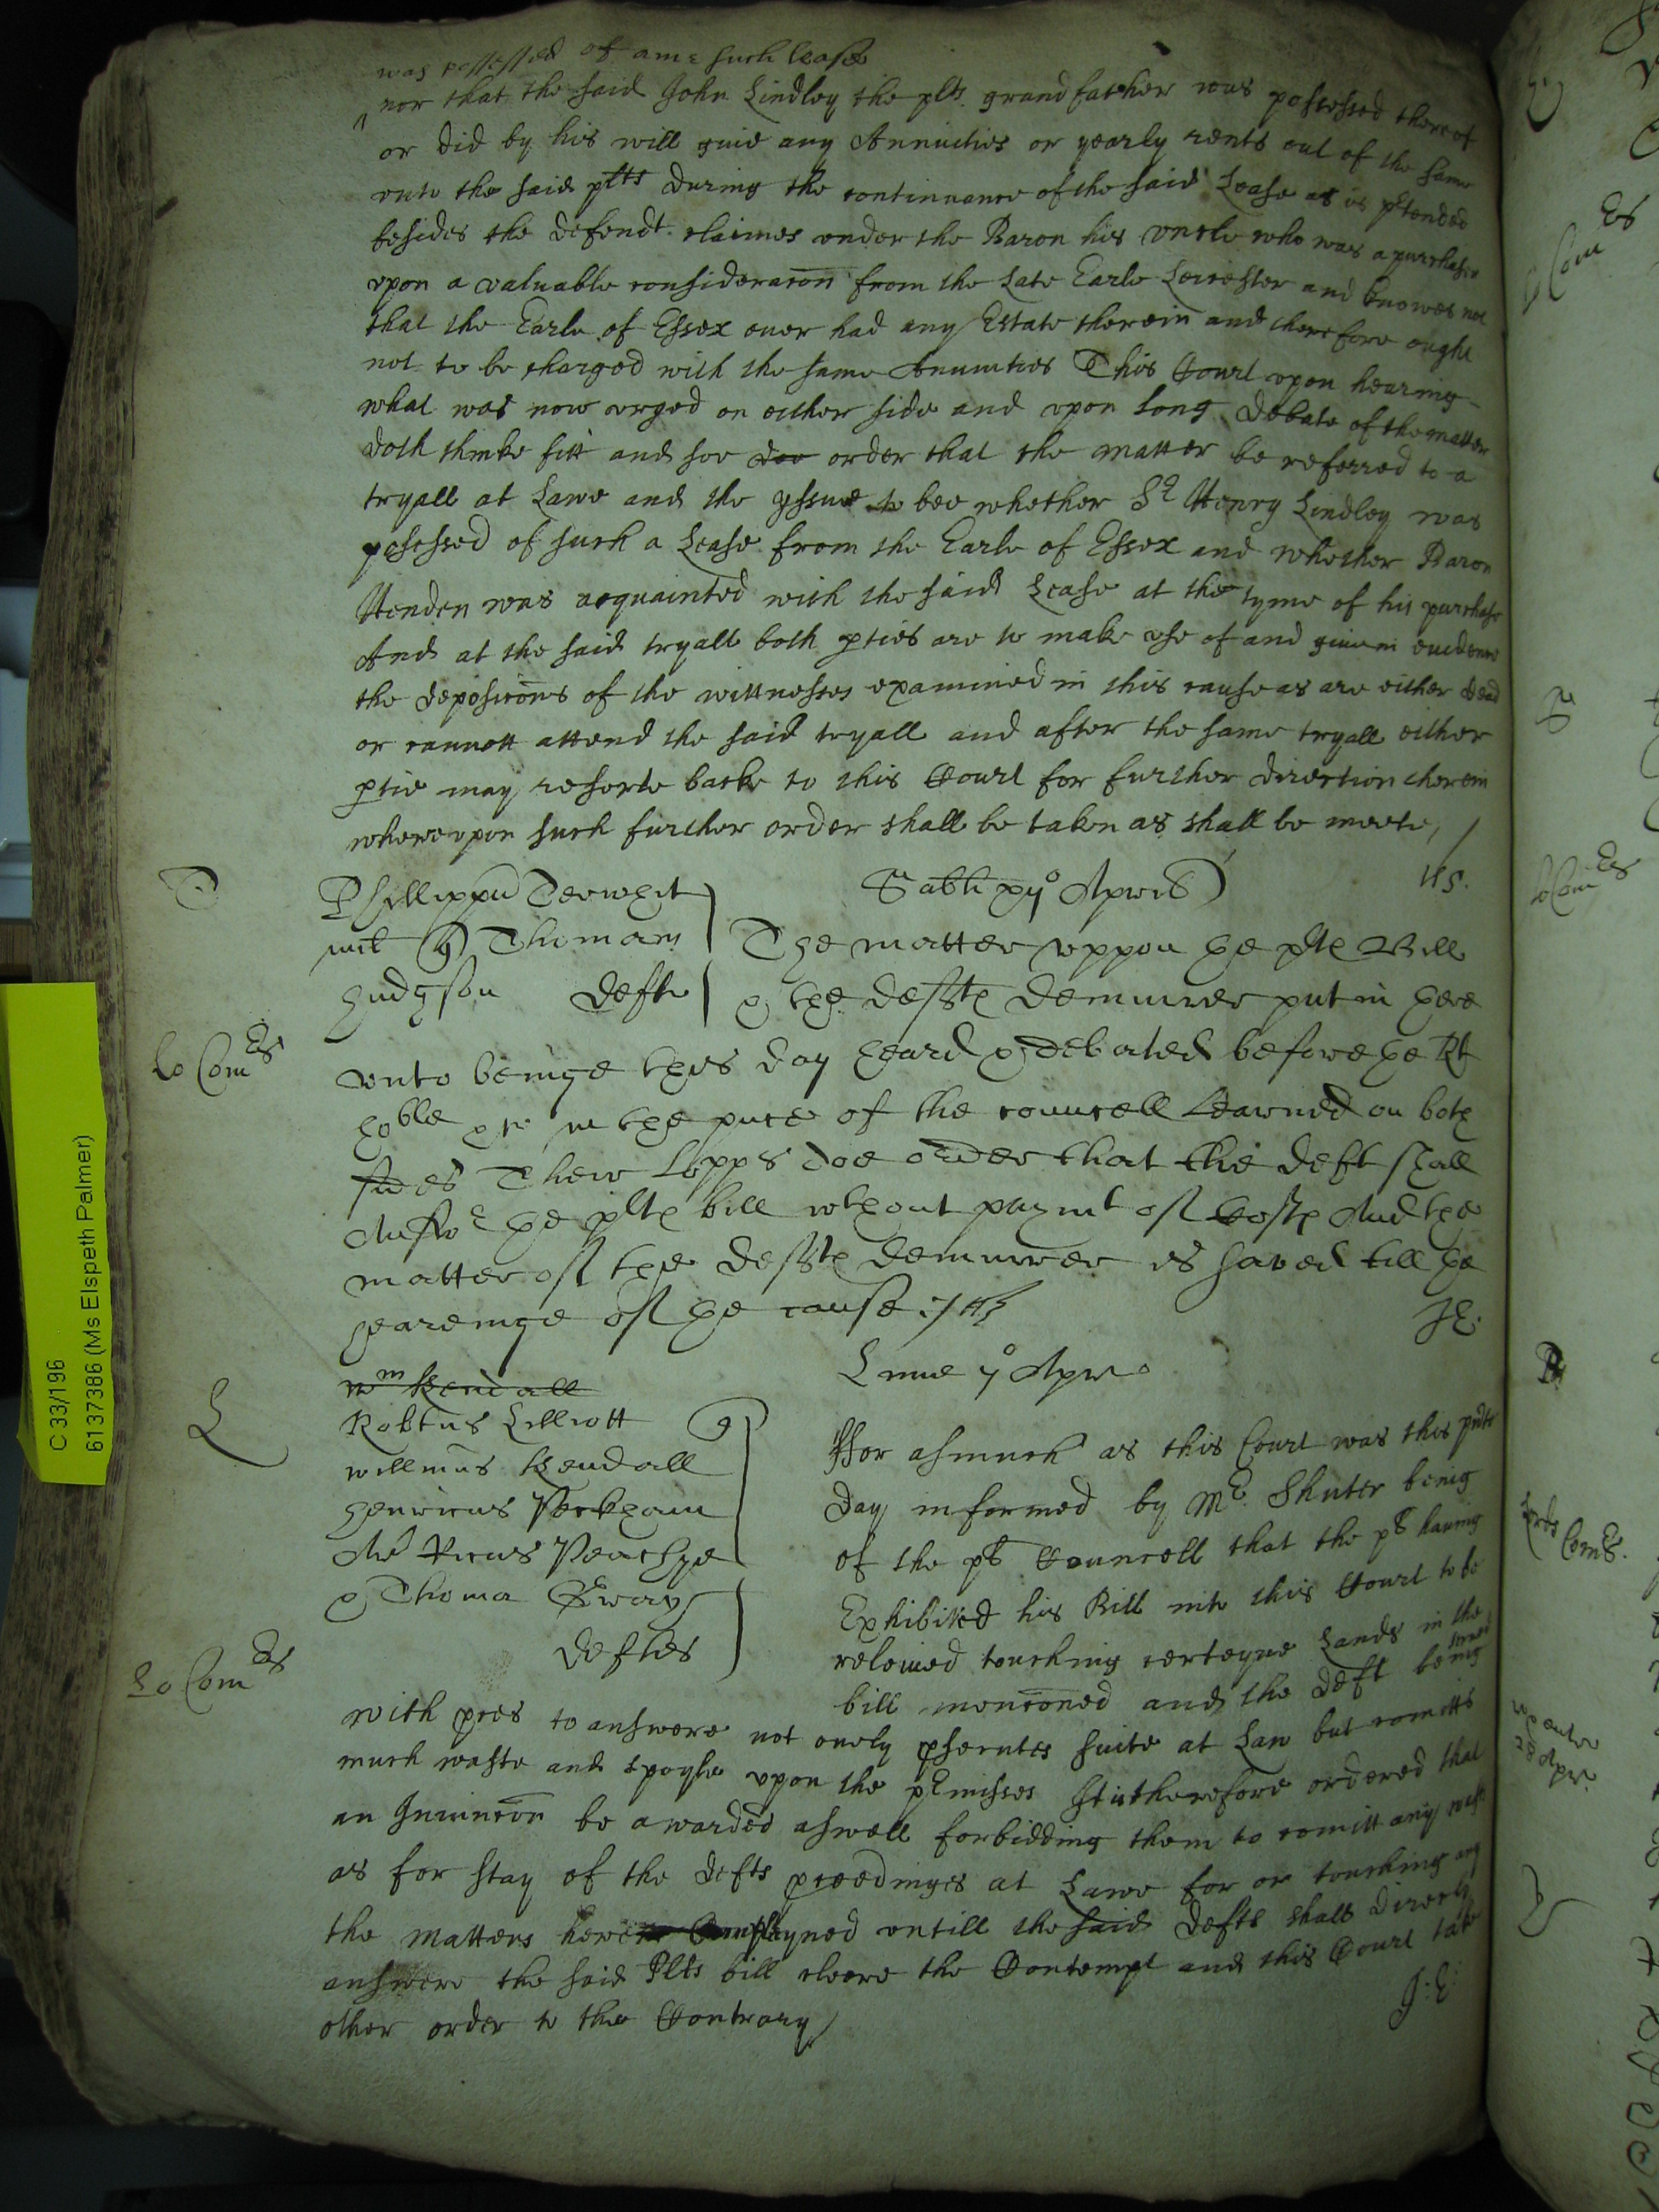 was possessed of anie such lease
nor that the said John Lindley the plts grandfather was possessed thereof
or did by his will giue any Annuities or yearly rents out of the same
vnto the said plts during the continuance of the said Lease as is ptended
besides the defendt claimes vnder the Baron his vncle who was a purchaser
vpon a valuable consideracon from the Late Earle Leicester and knowes not
that the Earle of Essex euer had any Estate therein and therefore ought
not to be charged with the same Annuities This Court vpon hearing
what was now vrged on either side and vpon long debate of the matter
doth thinke fitt and soe doe order that the matter be referred to a
tryall at Lawe and the yssue to bee whether Sr Henry Lindley was
possessed of such a Lease from the Earle of Essex and whether Baron
Henden was acquainted with the said Lease at the tyme of his purchase
And at the said tryall both pties are to make vse of and giue in euidence
the deposicons of the wittnesses examined in this cause as are either dead
or cannott attend the said tryall and after the same tryall either
ptie may resorte backe to this Court for further direction therein
wherevpon such further order shall be taken as shall be meete
T
Sabti xijo Aprilis
HS.
Phillippus
quer Thomam
Hudgson defte
The matter vppon the plts Bill
& the defts demurrer put in here
Lo Comrs
vnto beinge this day heard & debated before the Rt
hoble in the pnce of the councell Learned on both
sides Their Lopps doe order that the deft shall
Answer the plts bill wthout paymt of Costs And the
matter of the defts demurrer is saved till the
heareinge of the cause
JE.
Wm Kendall
Lune Apr
L
Robtus Lilliott
Willmus Kendall
Henricus Peckham
Peachye
& Thoma Eway
deftes
ffor asmuch as this Court was this pnte
Day informed by Mr. Shuter being
of the pls Councell that the pl having
Exhibited his Bill into this Court to be
releiued touching certeyne Lands in the
bill menconed and the deft being
serued
Lo Comrs
with pces to answere not onely psecutes suite at Law but comitts
much waste and spoyle vpon the pmisses It is therefore ordered that
an Iniuncon be awarded aswell forbidding them to comitt any wast
as for stay of the Defts pceedinges at Lawe for or touching any
the matters herein Complayned vntill the said Defts shall direcly
answere the said Plts bill cleere the Contempt and this Court take
other order to the Contrary
J:E:
C 33/196
6137386 (Ms Elspeth Palmer)